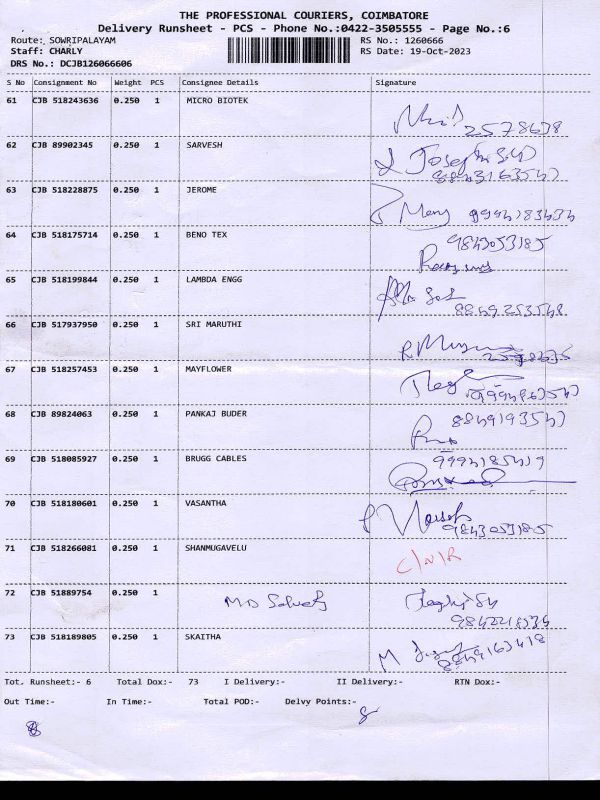 THE PROFESSIONAL COURIERS, COIMBATORE
Delivery Runsheet - PCS - Phone No.:0422-3505555 - Page No.:6
Route: SOWRIPALAYAM RS No.: 1260666
Staff: CHARLY RS Date: 19-Oct-2023
DRS No.: DCJB126066606
S No Consignment No Weight PCS Consignee Details Signature
61 CJB 518243636 0.250 1 MICRO BIOTEK
2578638
62 CJB 89902345 0.250 1 SARVESH
63 CJB 518228875 0.250 1 JEROME
64 CJB 518175714 0.250 1 BENO TEX 9843053185
65 CJB 518199844 0.250 1 LAMBDA ENGG
66 CJB 517937950 0.250 1 SRI MARUTHI
67 CJB 518257453 0.250 1 MAYFLOWER
68 CJB 89824063 0.250 1 PANKAJ BUDER
69 CJB 518085927 0.250 1 BRUGG CABLES
70 CJB 518180601 0.250 1 VASANTHA
9843053185
71 CJB 518266081 0.250 1 SHANMUGAVELU
C/N/R
72 CJB 51889754 0.250 1
73 CJB 518189805 0.250 1 SKAITHA
Tot. Runsheet:- 6 Total Dox:- 73 I Delivery:- II Delivery:- RTN Dox:-
Out Time:- In Time:- Total POD:- Delvy Points:-